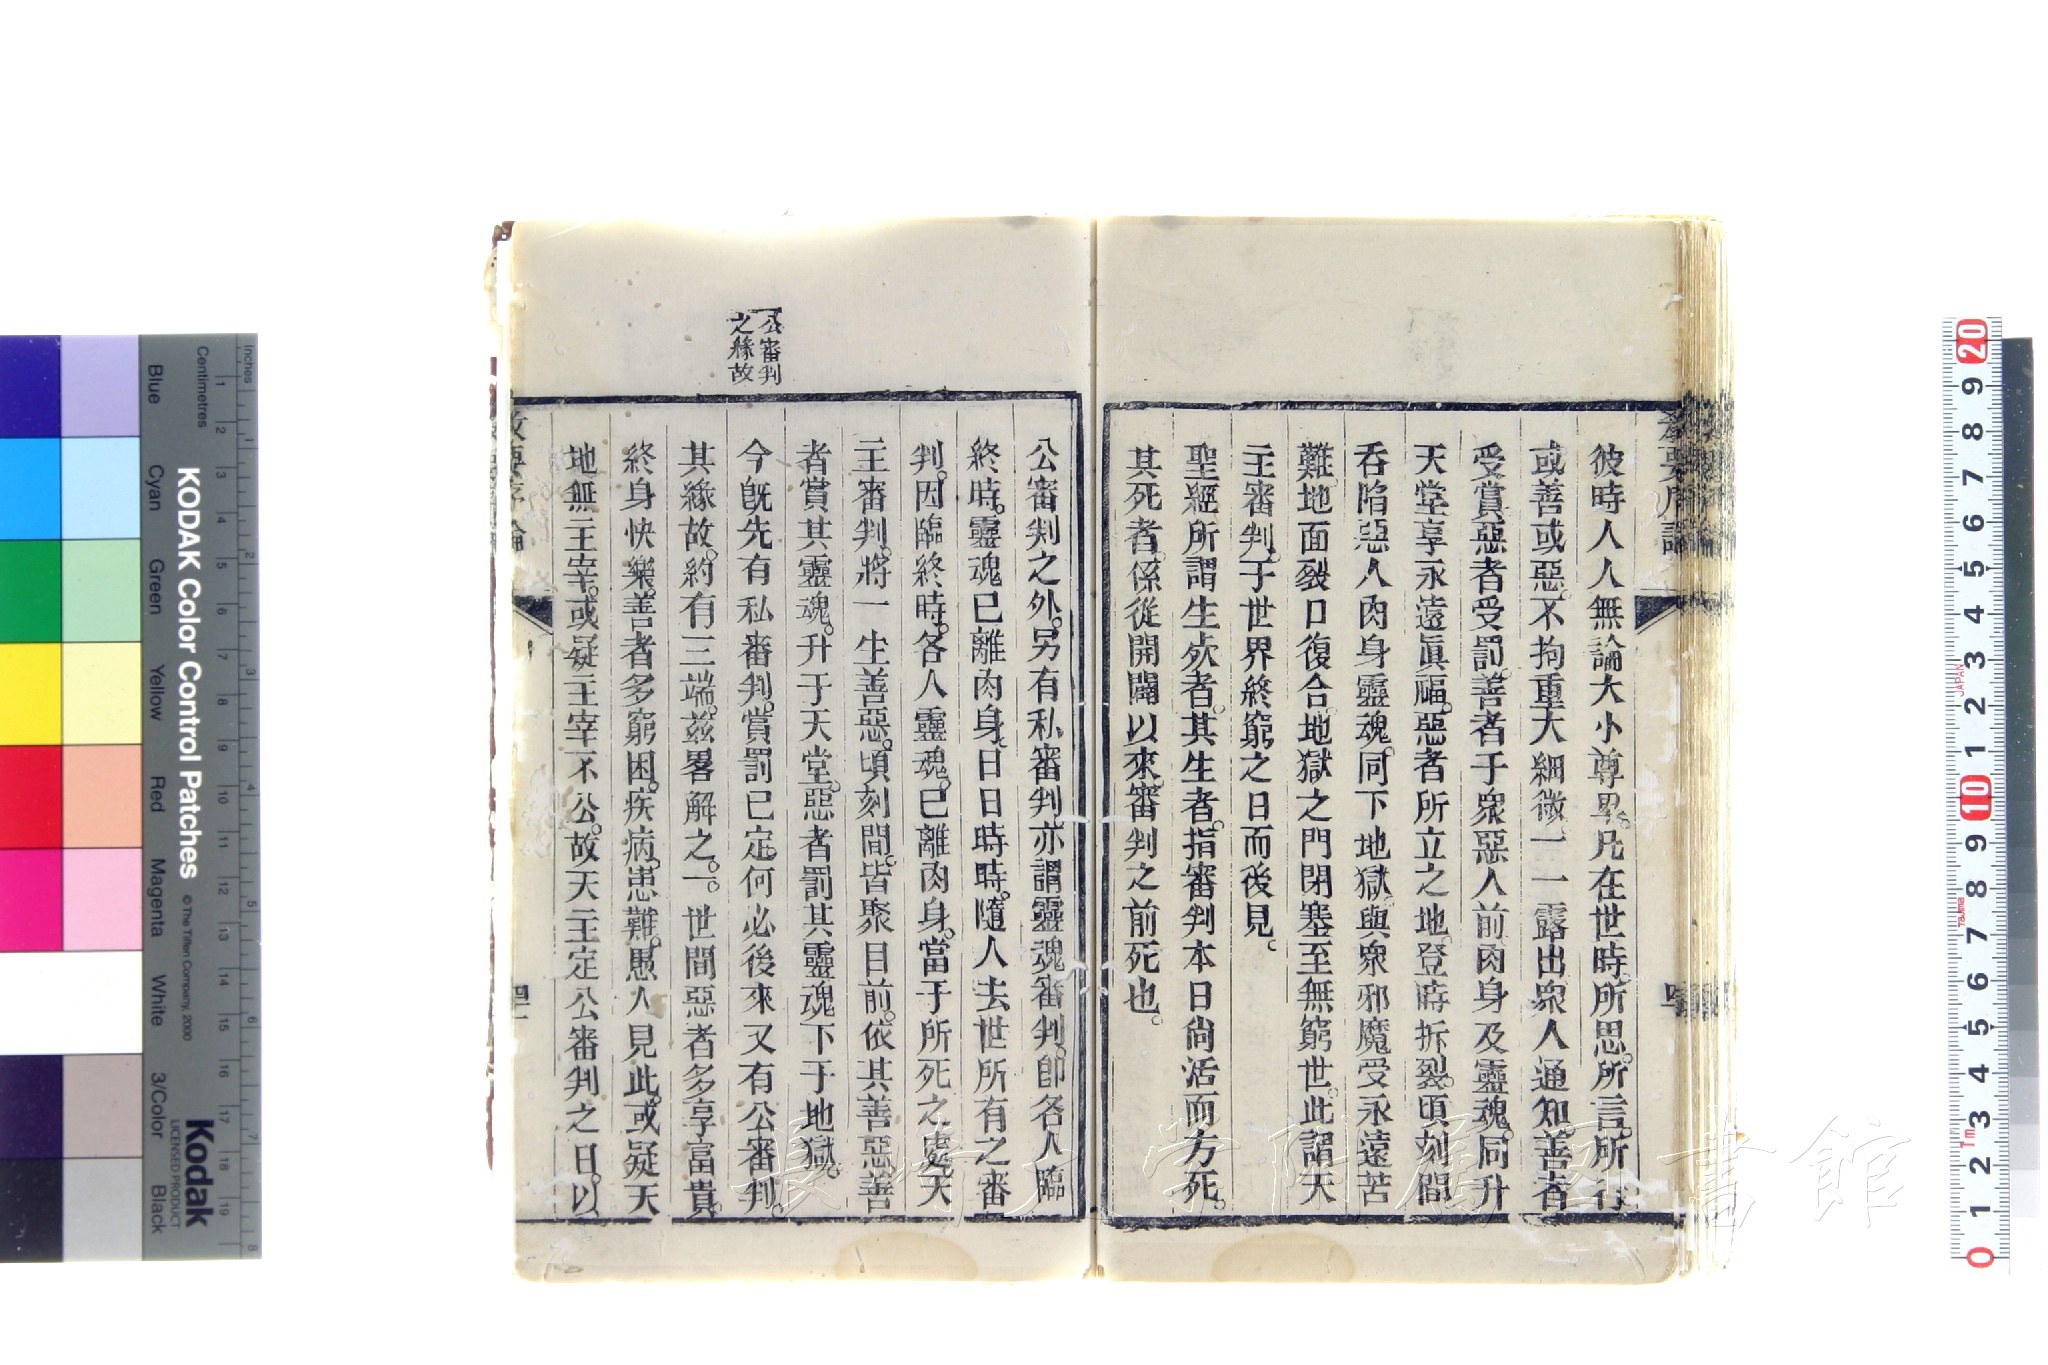 彼時人人無論大小尊卑。凡在世時。所思。所言。所行
或善或惡。不拘重大細微。一一露出。眾人通知。善者
受賞。惡者受罰。善者于眾惡人前。肉身及靈魂。同升
天堂。享永遠眞福。惡者所立之地。登時拆裂。頃刻間
吞陷惡人肉身靈魂。同下地獄。與眾邪魔受永遠苦
難。地面裂口復合。地獄之門閉塞。至無窮世。此謂天
主審判。于世界終窮之日而後見。
聖經所謂生死者。其生者。指審判本日尙活而方死。
其死者。係從開闢以來。審判之前死也。
公審判
之緣故
公審判之外。另有私審判。亦謂靈魂審判。卽各人臨
終時。靈魂已離肉身。日日時時。隨人去世所有之審
判。因臨終時。各人靈魂。已離肉身。當于所死之處。天
主審判。將一生善惡。頃刻間。皆聚目前。依其善惡。善
者賞其靈魂。升于天堂。惡者罰其靈魂下于地獄。
今旣先有私審判。賞罰已定。何必後來又有公審判。
其緣故。約有三端。茲畧解之。一。世間惡者多享富貴。
終身快樂。善者多窮困。疾病。患難。愚人見此。或疑天
地無主宰。或疑主宰不公。故天主定公審判之日。以
教要序論
KODAK Color Control Patches
© The Tiffen Company, 2000
Kodak
LICENSED PRODUCT
Inches
Centimetres
Blue
Cyan
Green
Yellow
Red
Magenta
White
3/Color
Black
長崎大学附属図書館
JAPAN